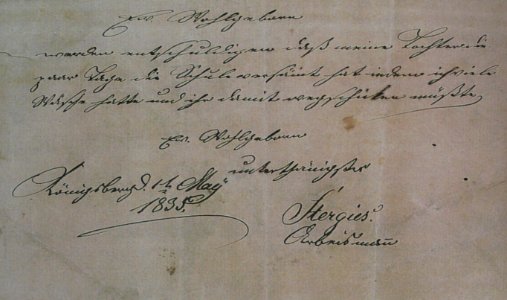 Ew. Wohlgeborn
werden entschuldigen daß meine Tochter die
paar Tage die Schule versäint hat indem ich viele
Wäsche hatte und ihr damit wegschicken müßte
Ew. Wohlgeborn
unterthänigster
Königsberg d. 1t May
1835.
Stergies.
Arbeismann